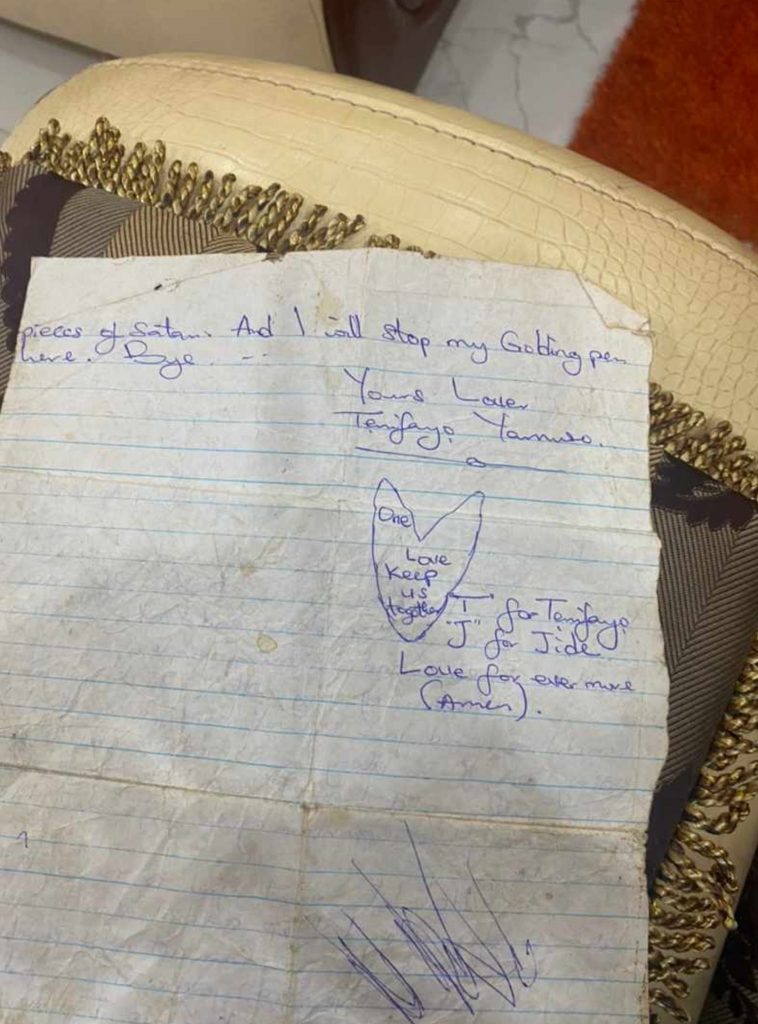 pieces of Satan. And I will stop my Golding pen
here. Bye. --
Yours Lover
Temifayo Yamuso.
One
Love
Keep
us
together
"T" for Temifayo
"J" for Jide
Love for ever more
(Amen).